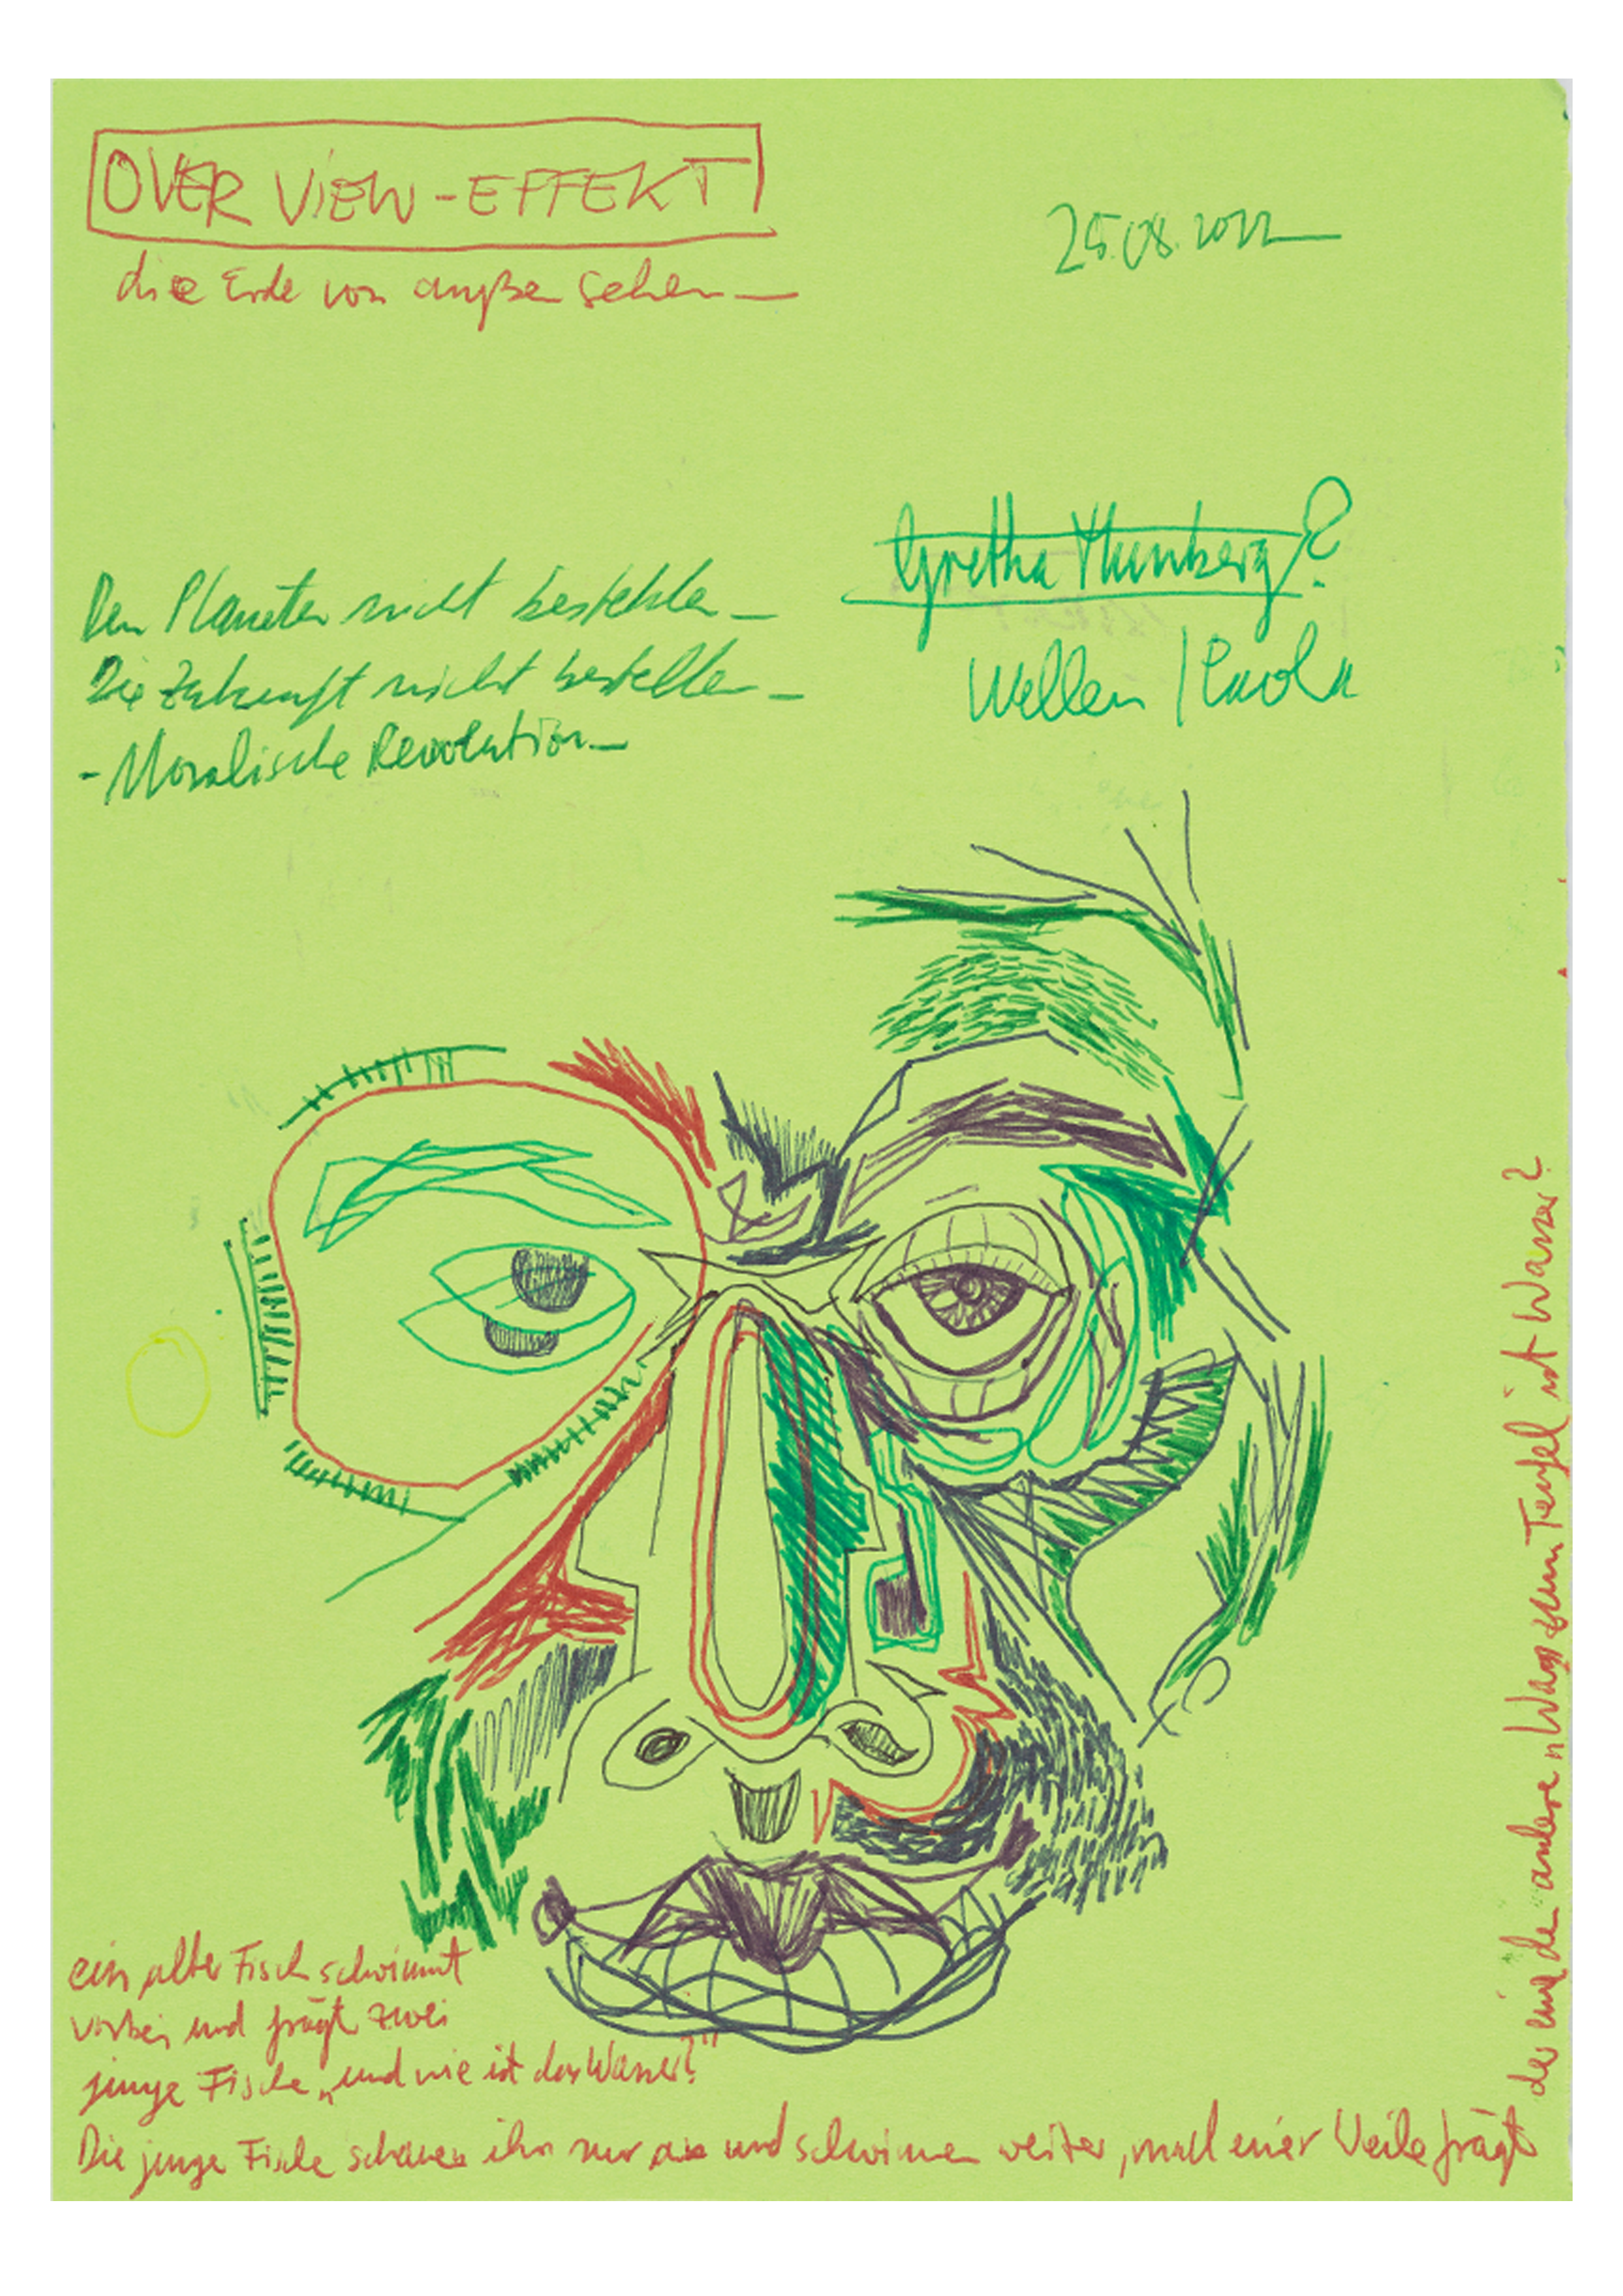 OVER VIEW-EFFEKT
die Erde von außen sehen—
25.08.2022
Gretha Thunberg?
Wellen /
Den Planeten nicht bestehlen—
Die Zukunft nicht bestellen—
-Moralische Revolution—
ein alter Fisch schwimmt
vorbei und frägt zwei
junge Fische „und wie ist das Wasser?"
Die junge Fische schauen ihn nur an und schwimmen weiter, nach einer Weile frägt
der eine den andere "Was zum Teufel ist Wasser?